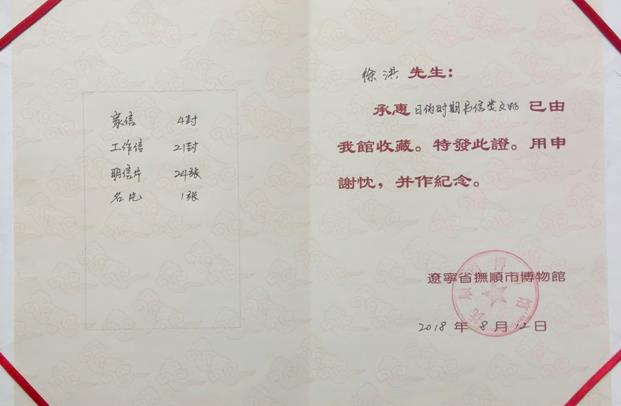 家信 4封
工作信 21封
明信片 24张
名片 1张
徐洪 先生：
承惠 日伪时期书信类文物 已由
我館收藏。特發此證。用申
謝忱，并作紀念。
遼寧省撫順市博物館
2018 年 8 月 12 日